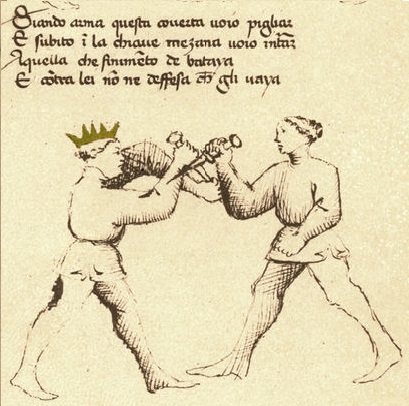 Quando arma questa coverta voio pigliar
E subito i la chiave mezana voio intrar
Aquella che finimēto de bataya
E cōtra lei nō ne deffesa ch̄ gli vaya